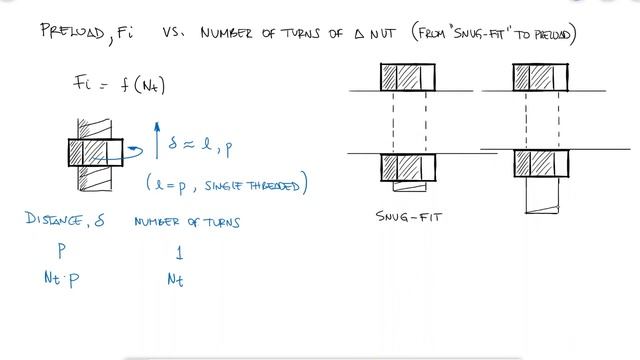 PRELOAD, Fi VS. NUMBER OF TURNS OF A NUT (FROM "SNUG-FIT" TO PRELOAD)
Fi = f(Nt)
δ ≈ l, p
(l=p, SINGLE THREADED)
SNUG-FIT
DISTANCE, δ NUMBER OF TURNS
p 1
Nt·p Nt